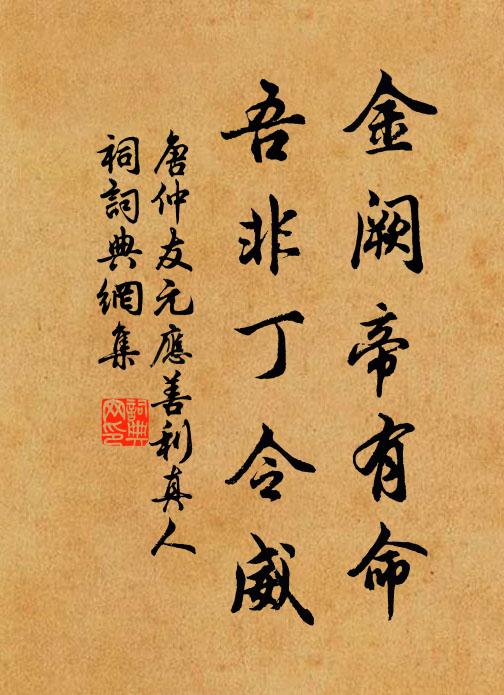 金阙帝有命
吾非丁令威
唐仲友元應善利真人
祠詞典網集
詞典
网印